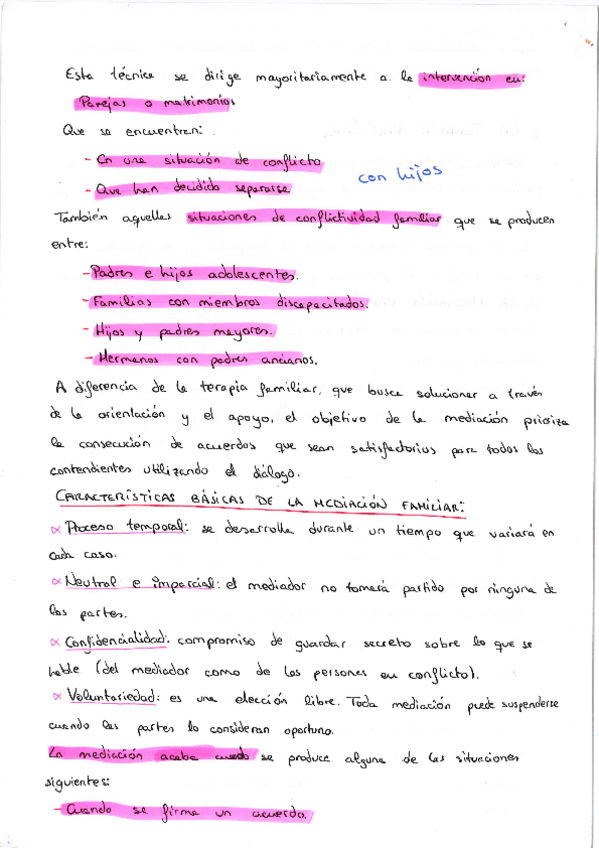 Esta técnica se dirige mayoritariamente a la intervención en:
Parejas o matrimonios
Que se encuentren:
- En una situación de conflicto
- Que han decidido separarse
con hijos
También aquellas situaciones de conflictividad familiar que se producen
entre:
- Padres e hijos adolescentes.
- Familias con miembros discapacitados.
- Hijos y padres mayores.
- Hermanos con padres ancianos.
A diferencia de la terapia familiar, que busca solucionar a través
de la orientación y el apoyo, el objetivo de la mediación prioriza
la consecución de acuerdos que sean satisfactorios para todos los
contendientes utilizando el diálogo.
CARACTERÍSTICAS BÁSICAS DE LA MEDIACIÓN FAMILIAR:
∝ Proceso temporal: se desarrolla durante un tiempo que variará en
cada caso.
∝ Neutral e imparcial: el mediador no tomará partido por ninguna de
las partes.
∝ Confidencialidad: compromiso de guardar secreto sobre lo que se
hable (del mediador como de las personas en conflicto).
∝ Voluntariedad: es una elección libre. Toda mediación puede suspenderse
cuando las partes lo consideran oportuno.
La mediación acaba cuando se produce alguna de las situaciones
siguientes:
- Cuando se firma un acuerdo.